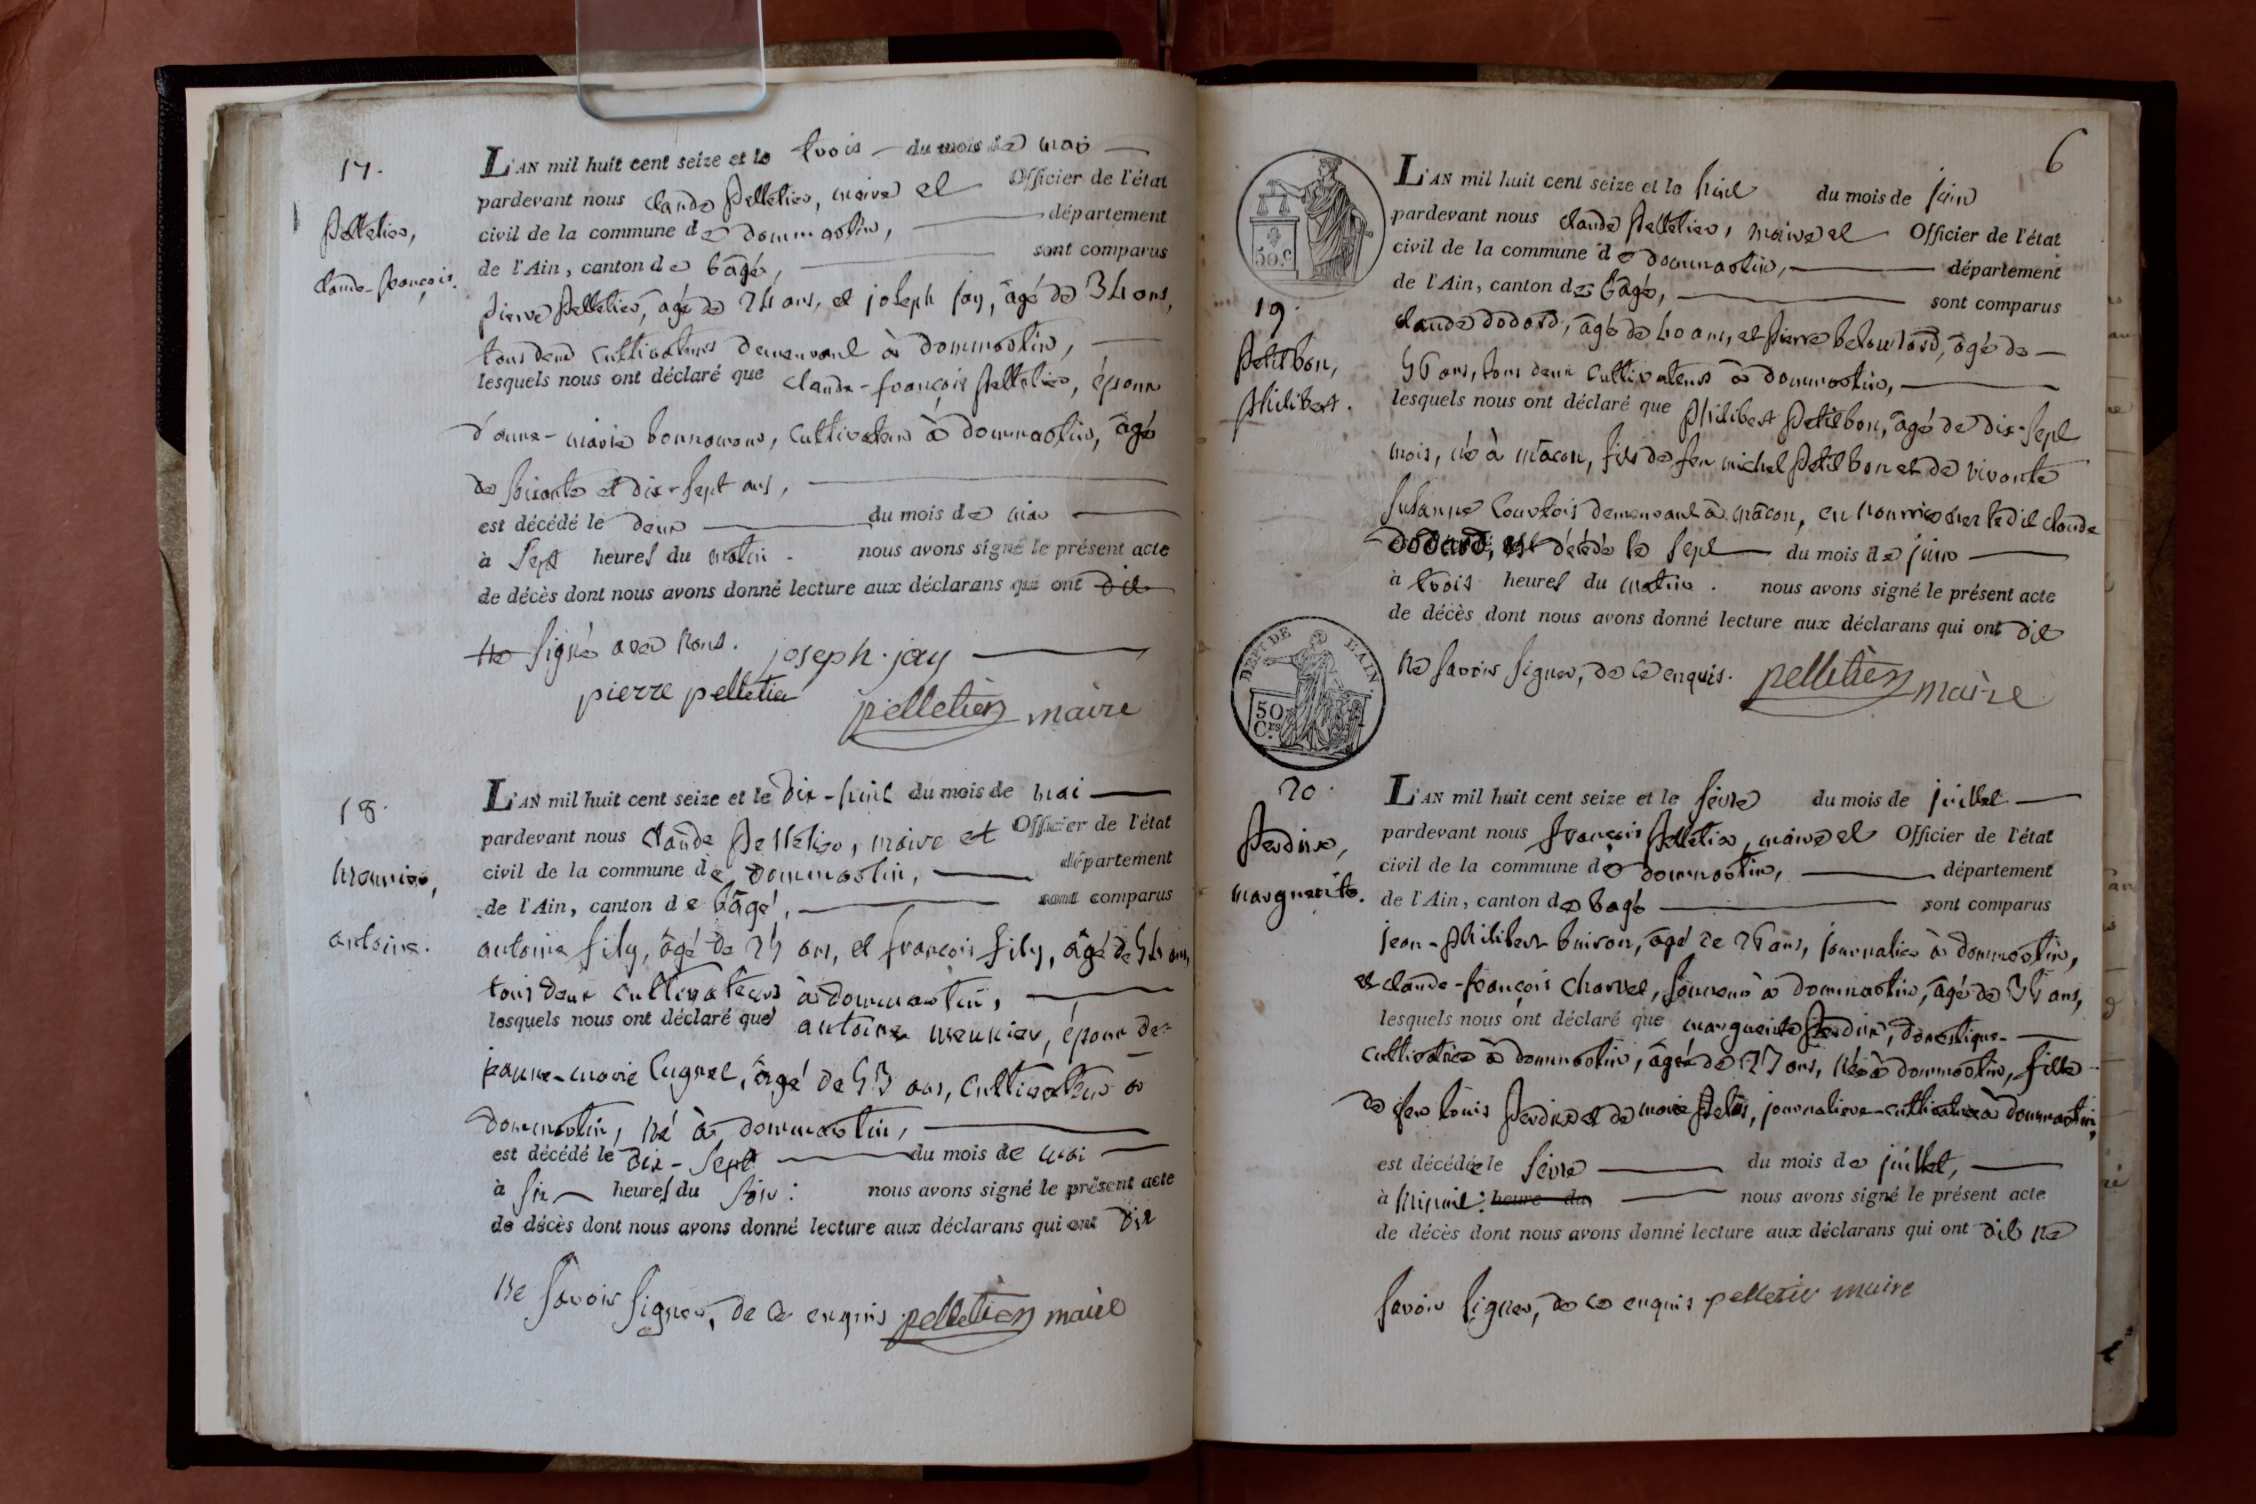 17.
Pelletier,
Claude-françois.
L'AN mil huit cent seize et le trois du mois de mai
pardevant nous Claude Pelletier, maire et Officier de l'état
civil de la commune de dommartin, département
de l'Ain, canton de bâgé, sont comparus
pierre Pelletier, âgé de 24 ans, et joseph jay, âgé de 34 ans,
tous deux cultivateurs demeurant à dommartin,
lesquels nous ont déclaré que Claude-françois Pelletier, époux
d'anne-marie bonnamour, cultivateur à dommartin, âgé
de soixante et dix-sept ans,
est décédé le deux du mois de mai
à sept heures du matin. nous avons signé le présent acte
de décès dont nous avons donné lecture aux déclarans qui ont dit
ne signé avec nous. joseph. jay
pierre pelletier
pelletier maire
18.
Meunier,
antoine.
L'AN mil huit cent seize et le dix-huit du mois de mai
pardevant nous Claude Pelletier, maire et Officier de l'état
civil de la commune de dommartin, département
de l'Ain, canton de bâgé, sont comparus
antoine fily, âgé de 24 ans, et françois fily, âgé de 54 ans,
tous deux cultivateurs à dommartin,
lesquels nous ont déclaré que antoine meunier, époux de
jeanne-marie Cugnet, âgé de 53 ans, cultivateur à
dommartin, né à dommartin,
est décédé le dix-sept du mois de mai
à six heures du soir: nous avons signé le présent acte
de décès dont nous avons donné lecture aux déclarans qui ont dit
ne savoir signer, de ce enquis pelletier maire
6
50 C
19.
Petitbon,
Philibert.
L'AN mil huit cent seize et le huit du mois de juin
pardevant nous Claude Pelletier, maire et Officier de l'état
civil de la commune de dommartin, département
de l'Ain, canton de bâgé, sont comparus
Claude dodard, âgé de 40 ans, et Pierre belouzard, âgé de
56 ans, tous deux cultivateurs à dommartin,
lesquels nous ont déclaré que Philibert Petitbon, âgé de dix-sept
mois, né à mâcon, fils de feu michel Petitbon et de vivante
susanne Courtois demeurant à mâcon, en nourrice chez ledit Claude
dodard, est décédé le sept du mois de juin
à trois heures du matin. nous avons signé le présent acte
de décès dont nous avons donné lecture aux déclarans qui ont dit
ne savoir signer, de ce enquis. pelletier maire
DEP.T DE L'AIN.
50 C.es
20.
Perdrix,
marguerite.
L'AN mil huit cent seize et le seize du mois de juillet
pardevant nous françois Pelletier, maire et Officier de l'état
civil de la commune de dommartin, département
de l'Ain, canton de bagé sont comparus
jean-Philibert buiron, âgé de 26 ans, journalier à dommartin,
et claude-françois Charvet, à dommartin, âgé de 34 ans,
lesquels nous ont déclaré que marguerite Perdrix, domestique-
cultivatrice à dommartin, âgée de 27 ans, née à dommartin, fille
de feu louis Perdrix et de marie Petit, journaliere-cultivatrice à dommartin,
est décédée le seize du mois de juillet,
à minuit: heure du nous avons signé le présent acte
de décès dont nous avons donné lecture aux déclarans qui ont dit ne
savoir signer, de ce enquis pelletier maire